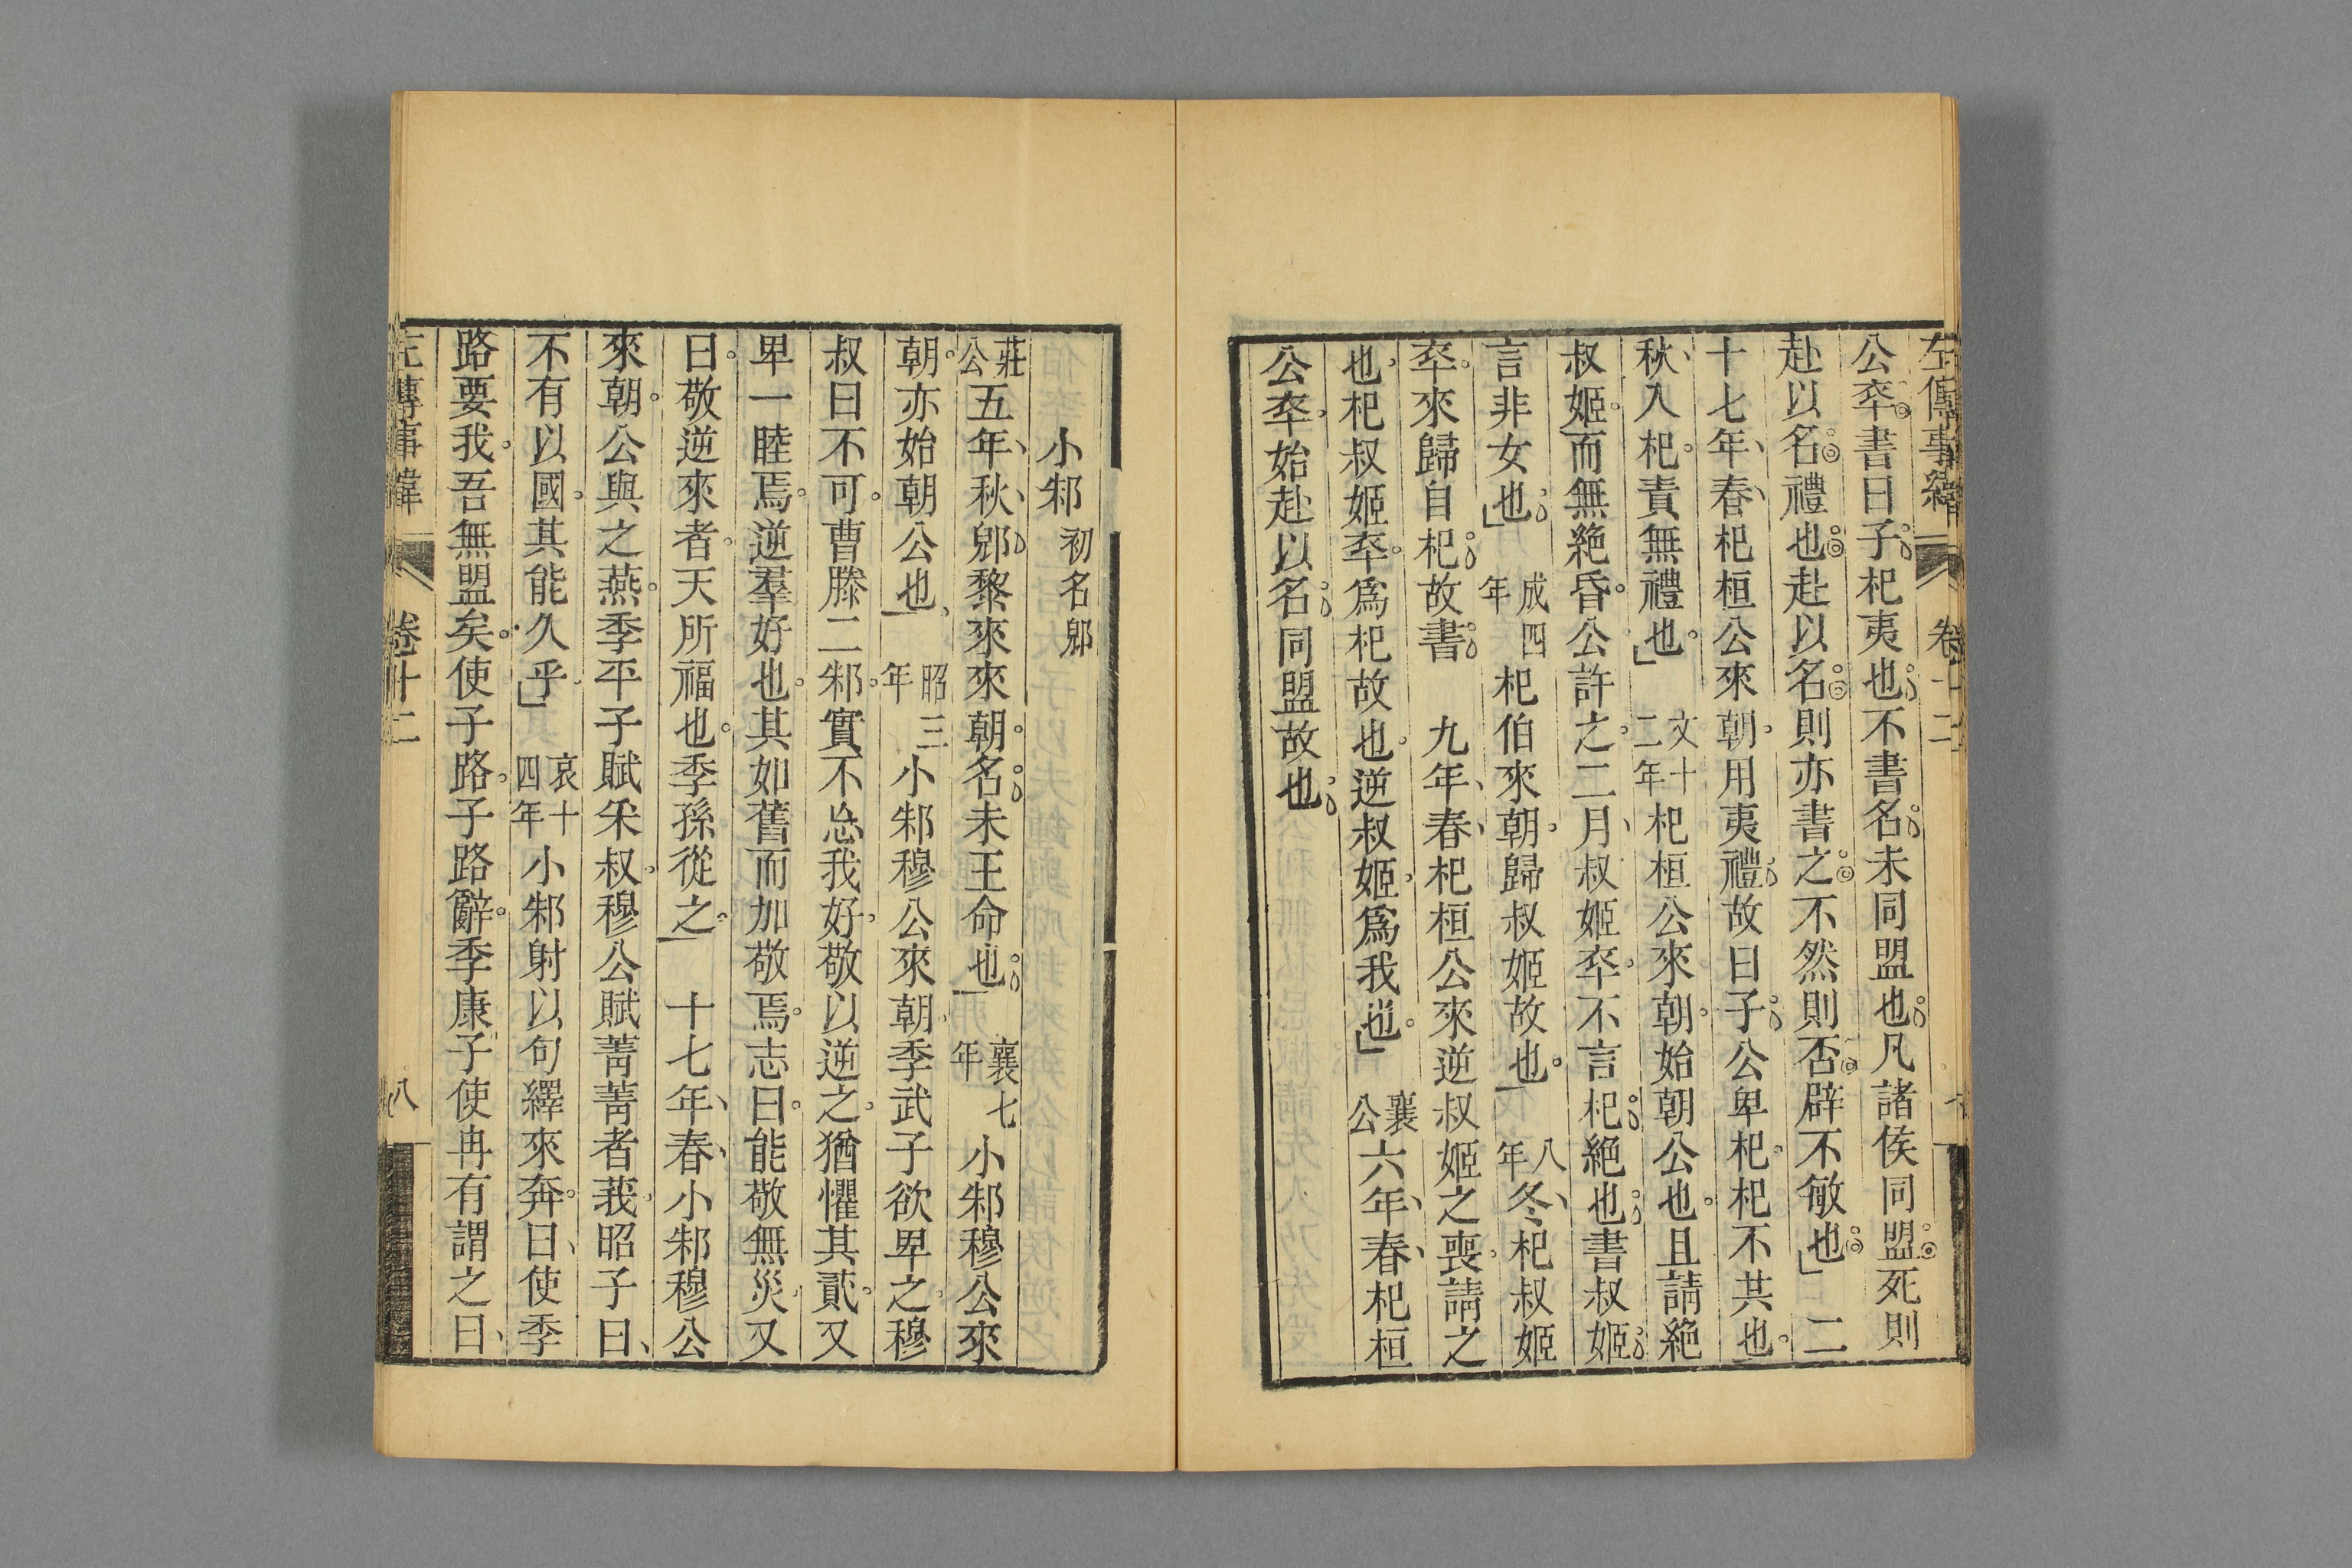 左傳事緯 卷十二
公卒書曰子杞夷也不書名未同盟也凡諸侯同盟死則
赴以名禮也赴以名則亦書之不然則否辟不敏也 二
十七年春杞桓公來朝用夷禮故曰子公卑杞杞不共也
秋入杞責無禮也 文十二年 杞桓公來朝始朝公也且請絶
叔姬而無絶昏公許之二月叔姬卒不言杞絶也書叔姬
言非女也 成四年 杞伯來朝歸叔姬故也 八年 冬杞叔姬
卒來歸自杞故書 九年春杞桓公來逆叔姬之喪請之
也杞叔姬卒爲杞故也逆叔姬爲我也 襄公 六年春杞桓
公卒始赴以名同盟故也
小邾 初名郳
莊公 五年秋郳黎來來朝名未王命也 襄七年 小邾穆公來
朝亦始朝公也 昭三年 小邾穆公來朝季武子欲卑之穆
叔曰不可曹滕二邾實不忘我好敬以逆之猶懼其貳又
卑一睦焉逆羣好也其如舊而加敬焉志曰能敬無災又
曰敬逆來者天所福也季孫從之 十七年春小邾穆公
來朝公與之燕季平子賦采叔穆公賦菁菁者莪昭子曰
不有以國其能久乎 哀十四年 小邾射以句繹來奔曰使季
路要我吾無盟矣使子路子路辭季康子使冉有謂之曰
左傳事緯 卷十二 八